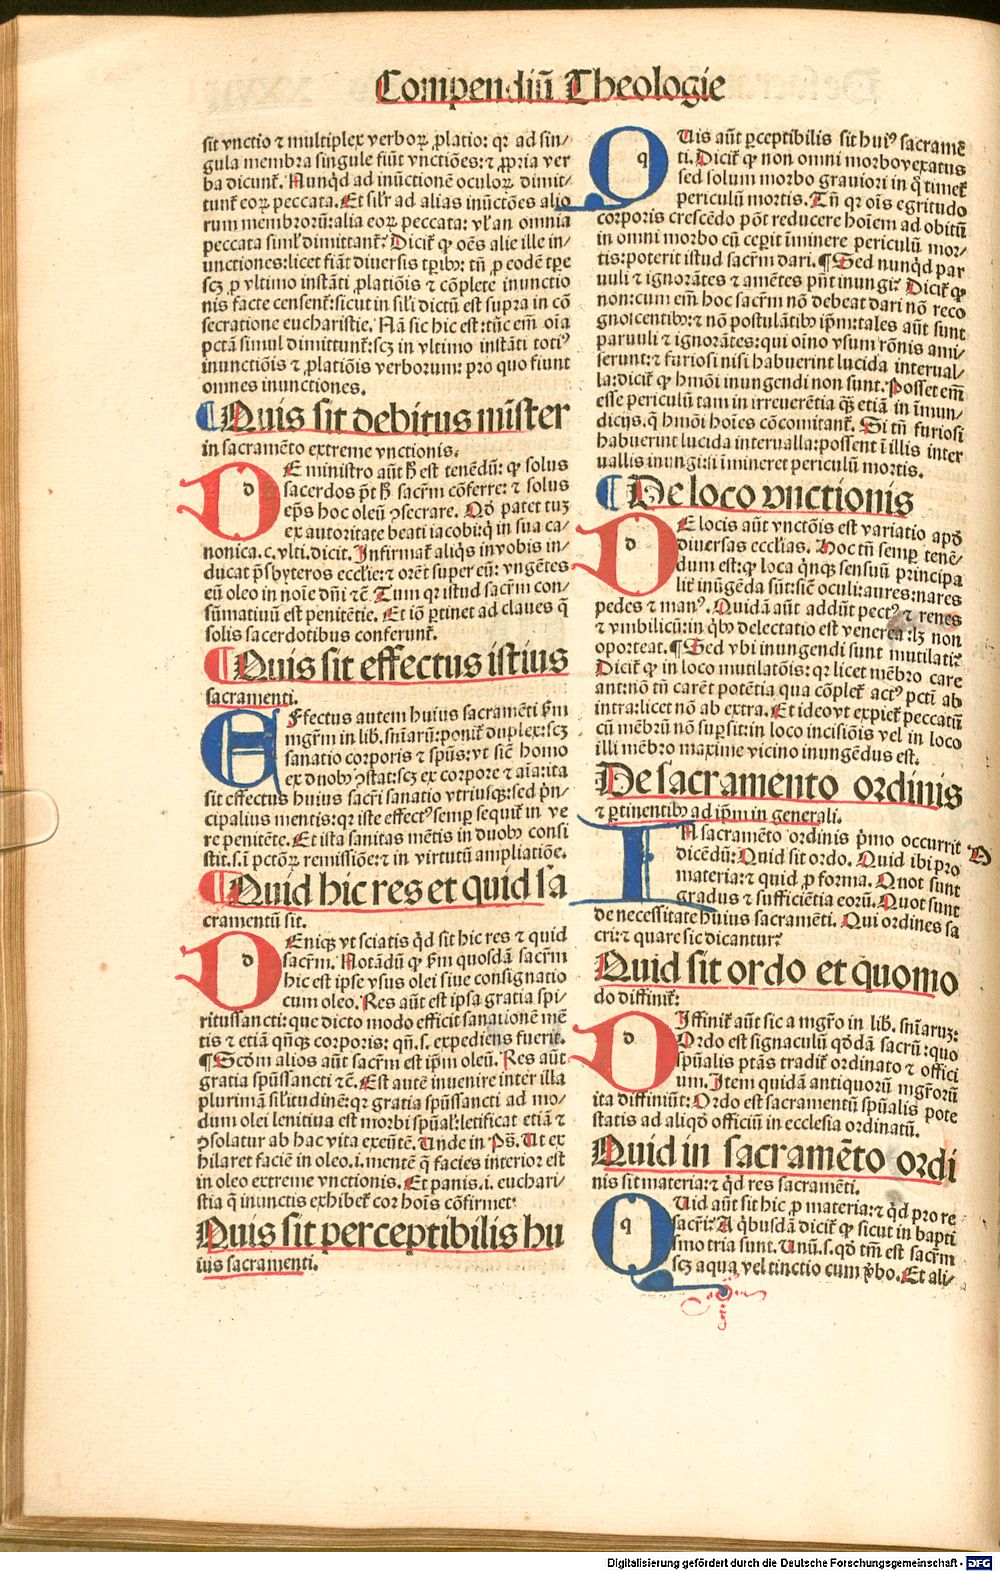 Compendiū Theologie
sit vnctio ⁊ multiplex verboꝝ ꝓlatio: qꝛ ad sin⸗
gula membra singule fiūt vnctiōes: ⁊ ꝓpria ver
ba dicunt᷑. Nunqͥd ad inūctionē oculoꝝ dimit⸗
tunt᷑ eoꝝ peccata. Et silꝛ ad alias inūctōes alio
rum membrorū: alia eoꝝ peccata: vl᷑ an omnia
peccata simul dimittant᷑? Dicit᷑ ꝙ oēs alie ille in⸗
unctiones: licet fiāt diuersis tꝑibꝰ: tñ ꝓ eodē tꝑe
scꝫ ꝓ vltimo instāti ꝓlatiōis ⁊ cōplete inunctio
nis facte censent᷑: sicut in sili dictū est supra in cō
secratione eucharistie. Nā sic hic est: tūc em̄ oīa
pctā simul dimittunt᷑: scꝫ in vltimo instāti totiꝰ
inunctiōis ⁊ ꝓlatiōis verborum: pro quo fiunt
omnes inunctiones.
¶ Quis sit debitus mīster
in sacramēto extreme vnctionis.
DE ministro aūt hͦ est tenēdū: ꝙ solus
sacerdos pōt hͦ sacr̄m cōferre: ⁊ solus
eps̄ hoc oleū ↄsecrare. Qḋ patet tuꝫ
ex autoritate beati iacobi: qͥ in sua ca⸗
nonica. c. vlti. dicit. Infirmat᷑ aliqͥs in vobis in⸗
ducat pr̄sbyteros ecclīe: ⁊ orēt super eū: vngētes
eū oleo in noīe dn̄i ⁊c̄. Tum qꝛ istud sacr̄m con⸗
sūmatiuū est penitētie. Et iō ꝑtinet ad claues q̄
solis sacerdotibus conferunt᷑.
¶ Quis sit effectus istius
sacramenti.
EFfectus autem huius sacramēti ẜm
mgr̄m in lib. sn̄iarū: ponit᷑ duplex: scꝫ
sanatio corporis ⁊ spūs: vt sicͧ homo
ex duobꝰ ↄstat: scꝫ ex corpore ⁊ aīa: ita
sit effectus huius sacr̄i sanatio vtriusqꝫ: sed p̄n⸗
cipalius mentis: qꝛ iste effectꝰ semꝑ sequit᷑ in ve
re penitēte. Et ista sanitas mētis in duobꝰ consi
stit. s. ī pctōꝝ remissiōe: ⁊ in virtutū ampliatiōe.
¶ Quid hic res et quid sa
cramentū sit.
DEniqꝫ vt sciatis qͥd sit hic res ⁊ quid
sacr̄m. Notādū ꝙ ẜm quosdā sacr̄m
hic est ipse vsus olei siue consignatio
cum oleo. Res aūt est ipsa gratia spi⸗
ritussancti: que dicto modo efficit sanationē mē
tis ⁊ etiā qn̄qꝫ corporis: qn̄. s. expediens fuerit.
¶ Scḋm alios aūt sacr̄m est ip̄m oleū. Res aūt
gratia spūssancti ⁊c̄. Est autē inuenire inter illa
plurimā sil̓itudinē: qꝛ gratia spūssancti ad mo⸗
dum olei lenitiua est morbi spūal: letificat etiā ⁊
ↄsolatur ab hac vita exeūtē. Unde in Ps̄. Ut ex
hilaret faciē in oleo. i. mentē q̄ facies interior est
in oleo extreme vnctionis. Et panis. i. euchari⸗
stia q̄ inunctis exhibet᷑ cor hoīs cōfirmet.
Quis sit perceptibilis hu
ius sacramenti.
QUis aūt ꝑceptibilis sit huiꝰ sacramē
ti. Dicit᷑ ꝙ non omni morbo vexatus
sed solum morbo grauiori in q̄ timet᷑
periculū mortis. Tn̄ qꝛ oīs egritudo
corporis crescēdo pōt reducere hoīem ad obitū
in omni morbo cū ceperit īminere periculū mor⸗
tis: poterit istud sacr̄m dari. ¶ Sed nunqͥd par
uuli ⁊ ignorātes ⁊ amētes pn̄t inungi? Dicit᷑ ꝙ
non: cum em̄ hoc sacr̄m nō debeat dari nō reco
gnoscentibꝰ: ⁊ nō postulātibꝰ ip̄m: tales aūt sunt
paruuli ⁊ ignorātes: qui oīno vsum rōnis ami⸗
serunt: ⁊ furiosi nisi habuerint lucida interual⸗
la: dicit᷑ ꝙ hmōi inungendi non sunt. Posset em̄
esse periculū tam in irreuerētia qͣꝫ etiā in īmun⸗
dicijs. q̄ hmōi hoīes cōcomitant᷑. Si tn̄ furiosi
habuerint lucida interualla: possent ī illis inter
uallis inungi: si īmineret periculū mortis.
¶ De loco vnctionis
DE locis aūt vnctōis est variatio apḋ
diuersas ecclīas. Hoc tn̄ semꝑ tenē⸗
dum est: ꝙ loca qͥnqꝫ sensuū principa
lit᷑ inūgēda sūt: sicͧ oculi: aures: nares
pedes ⁊ manꝰ. Quidā aūt addūt pectꝰ ⁊ renes
⁊ vmbilicū: in qͥbꝰ delectatio est venerea: lꝫ non
oporteat. ¶ Sed vbi inungendi sunt mutilati?
Dicit᷑ ꝙ in loco mutilatōis: qꝛ licet mēbro care
ant: nō tn̄ carēt potētia qua cōplet᷑ actꝰ pcti ab
intra: licet nō ab extra. Et ideo vt expiet᷑ peccatū
cū mēbrū nō suꝑsit: in loco incisiōis vel in loco
illi mēbro maxime vicino inungēdus est.
De sacramento ordinis
⁊ ꝑtinentibꝰ ad ip̄m in generali.
IN sacramēto ordinis pͥmo occurrit
dicēdū: Quid sit ordo. Quid ibi pro
materia: ⁊ quid ꝓ forma. Quot sunt
gradus ⁊ sufficiētia eorū. Quot sunt
de necessitate huius sacramēti. Qui ordines sa
cri: ⁊ quare sic dicantur?
Quid sit ordo et quomo
do diffinit᷑:
DIffinit᷑ aūt sic a mgr̄o in lib. sn̄iaruꝫ:
Ordo est signaculū qḋdā sacrū: quo
spūalis ptās tradit᷑ ordinato ⁊ offici
um. Item quidā antiquorū mgr̄orū
ita diffiniūt: Ordo est sacramentū spūalis pote
statis ad aliqḋ officiū in ecclesia ordinatū.
Quid in sacramēto ordi
nis sit materia: ⁊ qͥd res sacramēti.
QUid aūt sit hic ꝓ materia: ⁊ qͥd pro re
sacr̄i? A qͥbusdā dicit᷑ ꝙ sicut in bapti
smo tria sunt. Unū. s. qḋ tm̄ est sacr̄m
scꝫ aqua vel tinctio cum v̓bo. Et ali⸗
Digitalisierung gefördert durch die Deutsche Forschungsgemeinschaft - DFG